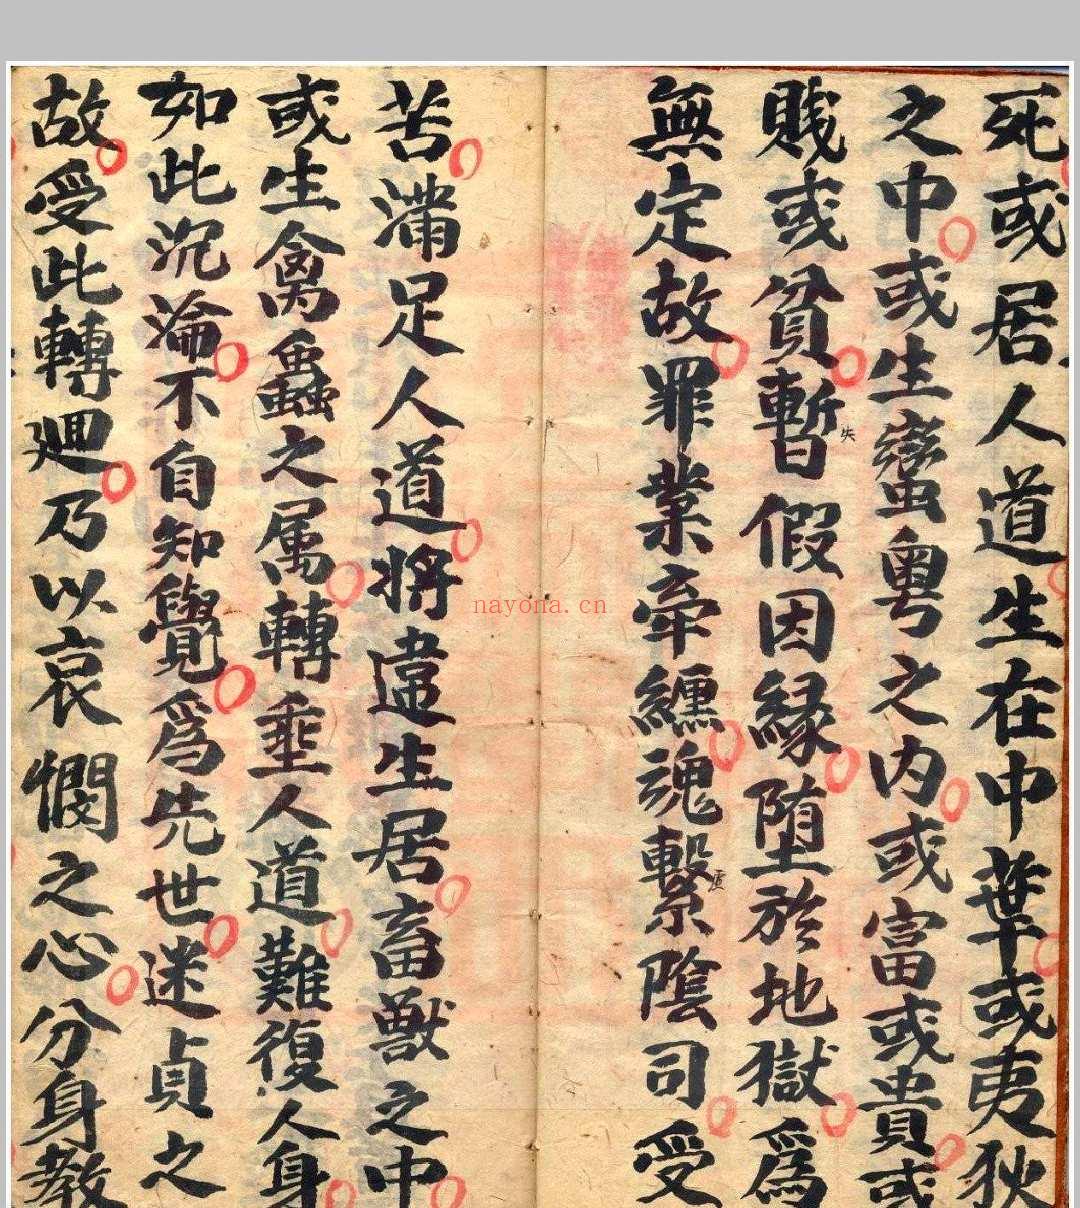 死或居人道生在中華或夷狄
之中或生蠻粤之内或富或貴或
賤或貧暫假因緣堕於地獄爲
失
無定故罪業牽纏魂繫陰司受
苦滿足人道將違生居畜獸之中
或生禽蟲之属轉乖人道難復人身
如此沉淪不自知覺爲先世迷貞之
故受此轉廻乃以哀憫之心分身教
nayona.cn